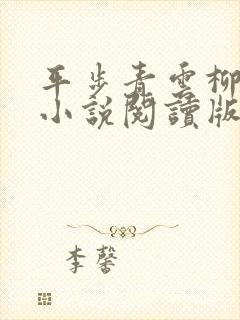 平步青雲柳
小説閱讀版
李馨